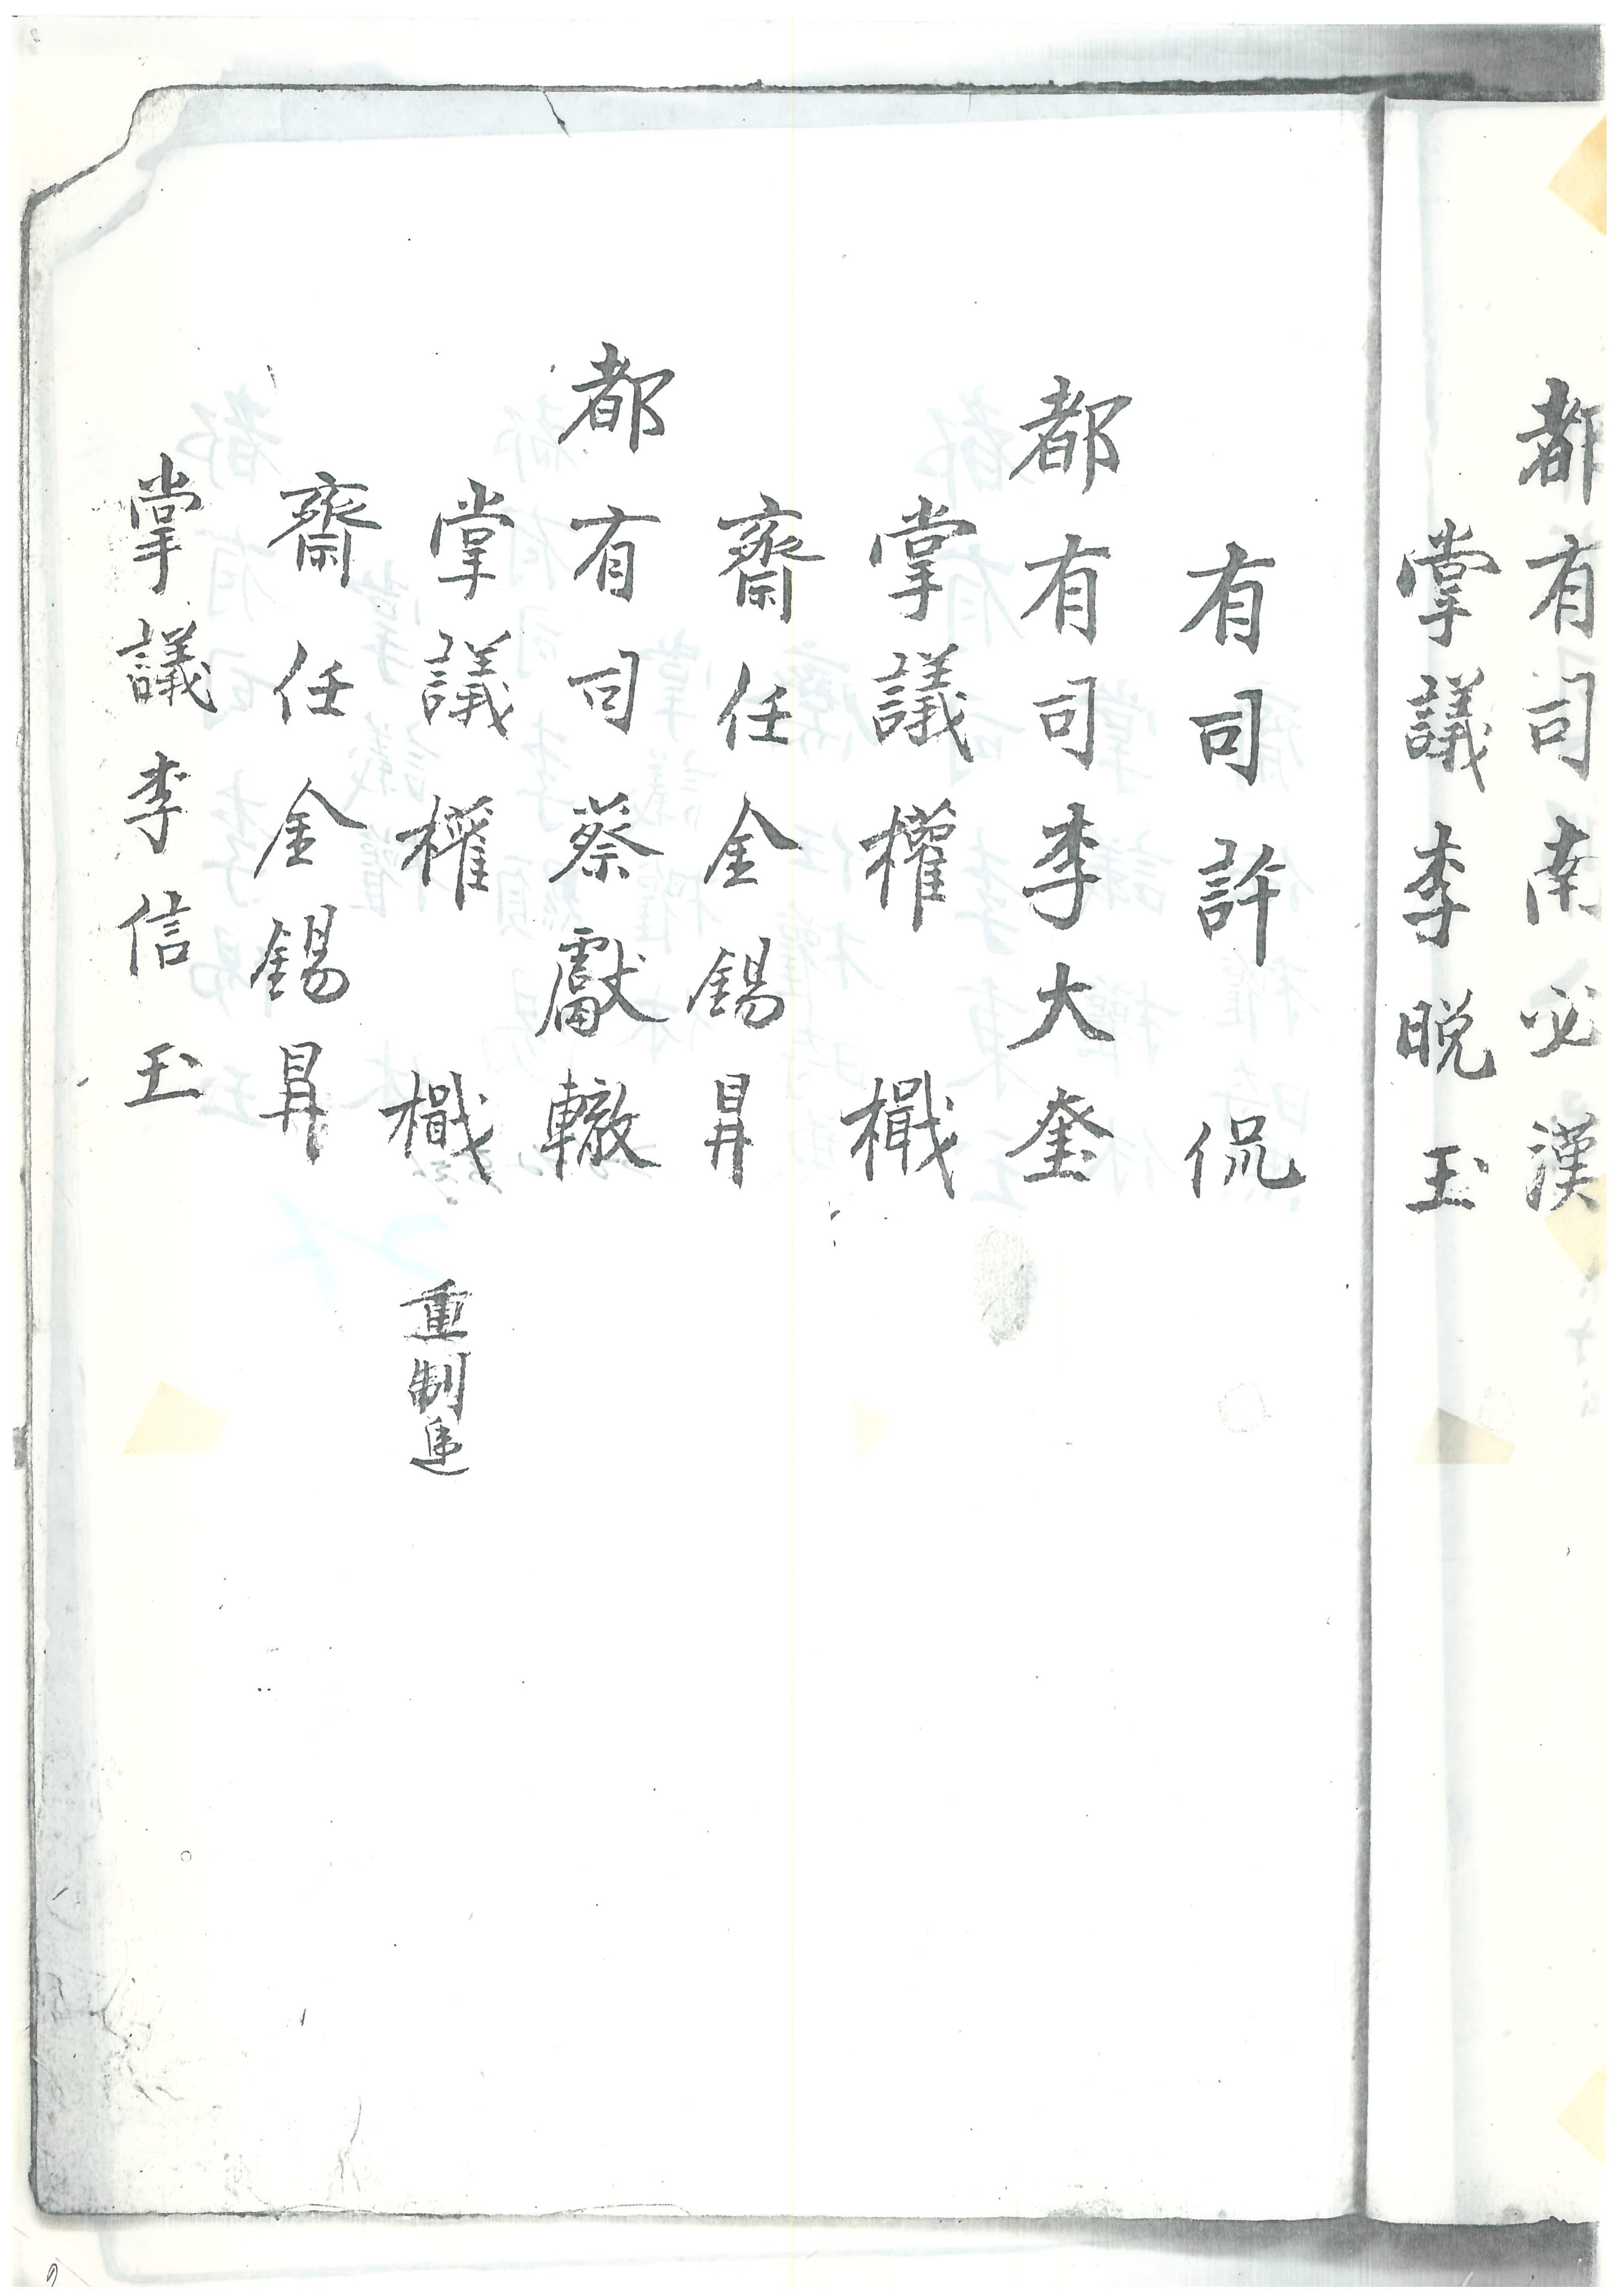 都有司南必漢
掌議李晩玉
有司許侃
都有司李大奎
掌議權樴
齋任金錫昇
都有司蔡獻轍
掌議權樴 重制遞
齋任金錫昇
掌議李信玉